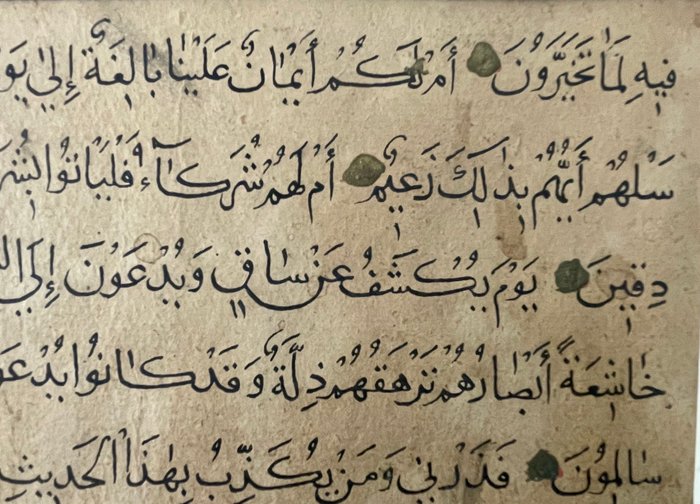 فِيهِ لَمَا تَخَيَّرُونَ أَمْ لَكُمْ أَيْمَانٌ عَلَيْنَا بَالِغَةٌ إِلَىٰ يَوْ
سَلْهُمْ أَيُّهُمْ بِذَٰلِكَ زَعِيمٌ أَمْ لَهُمْ شُرَكَاءُ فَلْيَأْتُوا بِشُرَ
دِقِينَ يَوْمَ يُكْشَفُ عَنْ سَاقٍ وَيُدْعَوْنَ إِلَى ال
خَاشِعَةً أَبْصَارُهُمْ تَرْهَقُهُمْ ذِلَّةٌ وَقَدْ كَانُوا يُدْعَوْ
سَالِمُونَ فَذَرْنِي وَمَنْ يُكَذِّبُ بِهَٰذَا الْحَدِيثِ